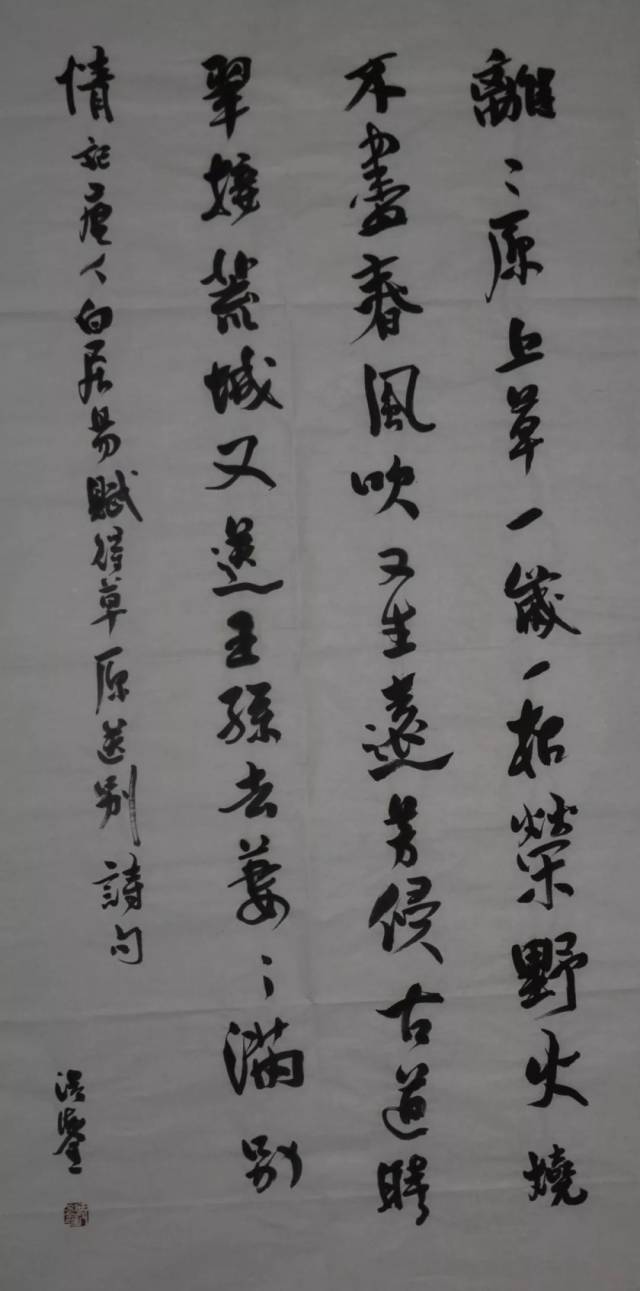 離〻原上草一歲一枯榮野火燒
不盡春風吹又生遠芳侵古道晴
翠接荒城又送王孫去萋〻滿別
情記唐人白居易賦得草原送別詩句